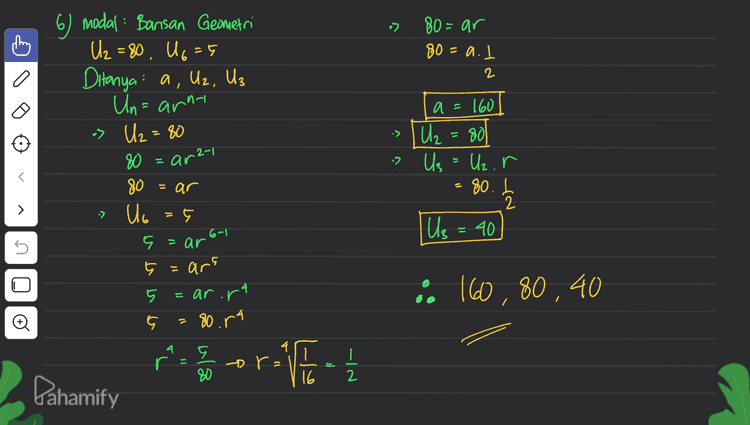 6) modal : Barisan Geometri
U₂ = 80, U₆ = 5
Ditanya : a, U₂, U₃
Uₙ = arⁿ⁻¹
-> U₂ = 80
80 = ar²⁻¹
80 = ar
-> U₆ = 5
5 = ar⁶⁻¹
5 = ar⁵
5 = ar.r⁴
5 = 80.r⁴
r⁴ = 5/80 → r = ⁴√1/16 = 1/2
-> 80 = ar
80 = a.1/2
a = 160
-> U₂ = 80
-> U₃ = U₂.r
= 80.1/2
U₃ = 40
∴ 160, 80, 40
Pahamify